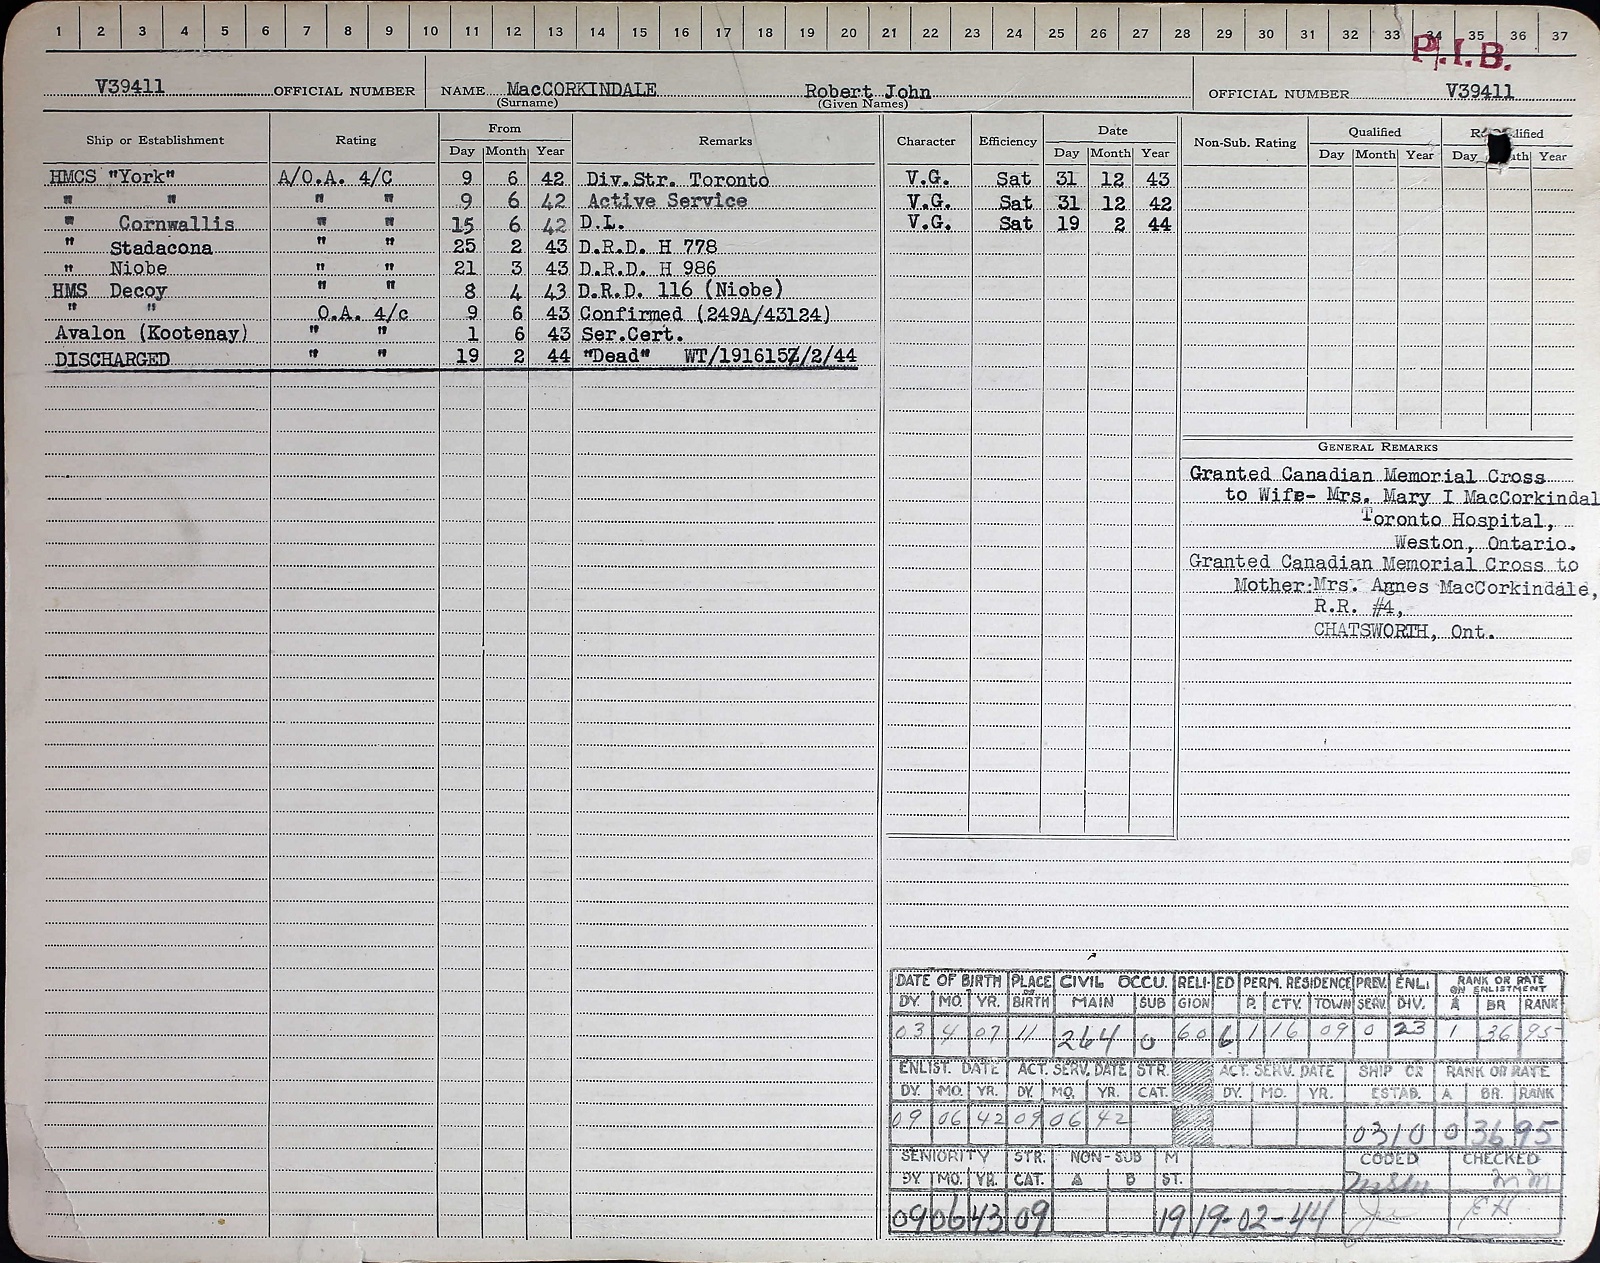 1 2 3 4 5 6 7 8 9 10 11 12 13 14 15 16 17 18 19 20 21 22 23 24 25 26 27 28 29 30 31 32 33 34 35 36 37
P.I.B.
V39411 OFFICIAL NUMBER NAME MacCORKINDALE Robert John OFFICIAL NUMBER V39411
(Surname) (Given Names)
Ship or Establishment Rating From Remarks Character Efficiency Date Non-Sub. Rating Qualified
Day Month Year Day Month Year Day Month Year Day Year
HMCS "York" A/O.A. 4/C 9 6 42 Div.Str. Toronto V.G. Sat 31 12 43
" " " " 9 6 42 Active Service V.G. Sat 31 12 42
" Cornwallis " " 15 6 42 D.L. V.G. Sat 19 2 44
" Stadacona " " 25 2 43 D.R.D. H 778
" Niobe " " 21 3 43 D.R.D. H 986
HMS Decoy " " 8 4 43 D.R.D. 116 (Niobe)
" " O.A. 4/c 9 6 43 Confirmed (249A/43124)
Avalon (Kootenay) " " 1 6 43 Ser.Cert.
DISCHARGED " " 19 2 44 "Dead" WT/191615Z/2/44
GENERAL REMARKS
Granted Canadian Memorial Cross
to Wife- Mrs. Mary I MacCorkindal
Toronto Hospital,
Weston, Ontario.
Granted Canadian Memorial Cross to
Mother:Mrs. Agnes MacCorkindale,
R.R. #4,
CHATSWORTH, Ont.
DATE OF BIRTH PLACE OF BIRTH CIVIL OCCU. RELIGION ED PERM. RESIDENCE PREV. SERV. ENL. DIV. RANK OR RATE ON ENLISTMENT
DY. MO. YR. MAIN SUB P. CTY. TOWN A BR RANK
03 4 07 11 264 0 60 6 1 16 09 0 23 1 36 95
ENLIST. DATE ACT. SERV. DATE STR. ACT. SERV. DATE SHIP OR RANK OR RATE
DY. MO. YR. DY. MO. YR. CAT. DY. MO. YR. ESTAB. A BR. RANK
09 06 42 09 06 42 0310 0 36 95
SENIORITY STR. NON-SUB M CODED CHECKED
DY MO. YR. CAT. A B ST.
09 06 43 09 19 19-02-44 EH